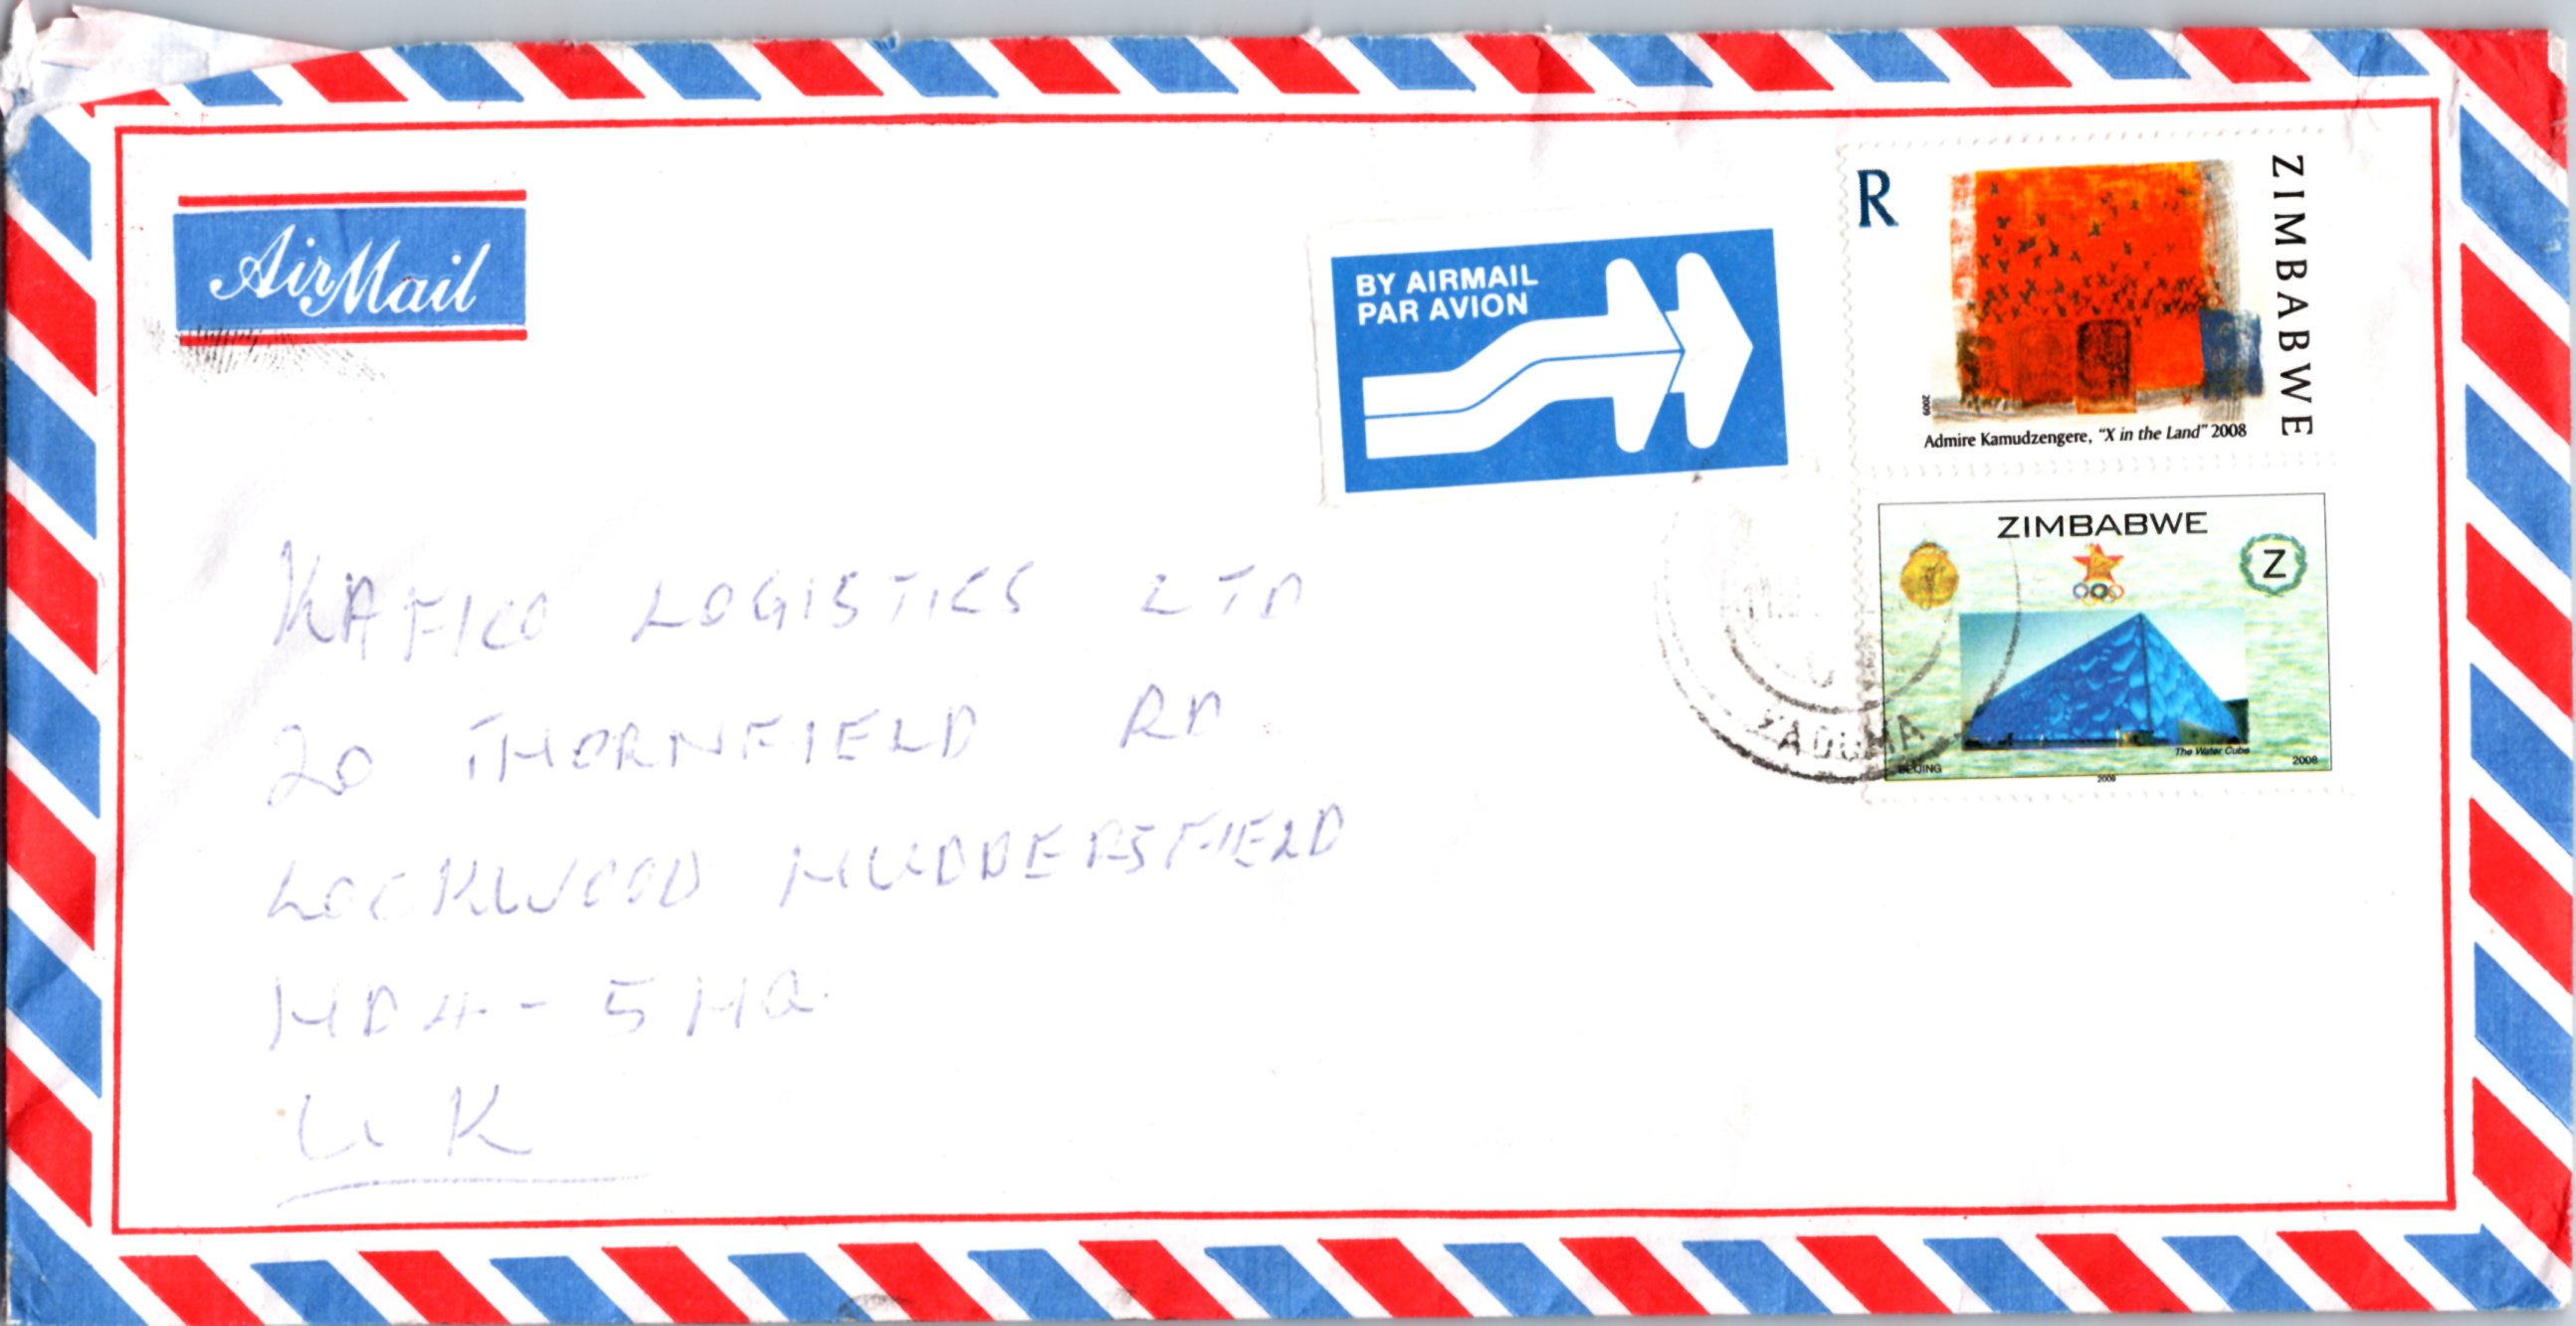 AirMail
BY AIRMAIL
PAR AVION
R
ZIMBABWE
2009
Admire Kamudzengere, "X in the Land" 2008
ZIMBABWE
Z
The Water Cube
BEIJING
2009
2008
KAFICO LOGISTICS LTD
20 THORNFIELD RD
LOCKWOOD HUDDERSFIELD
HD4 - 5HQ
UK